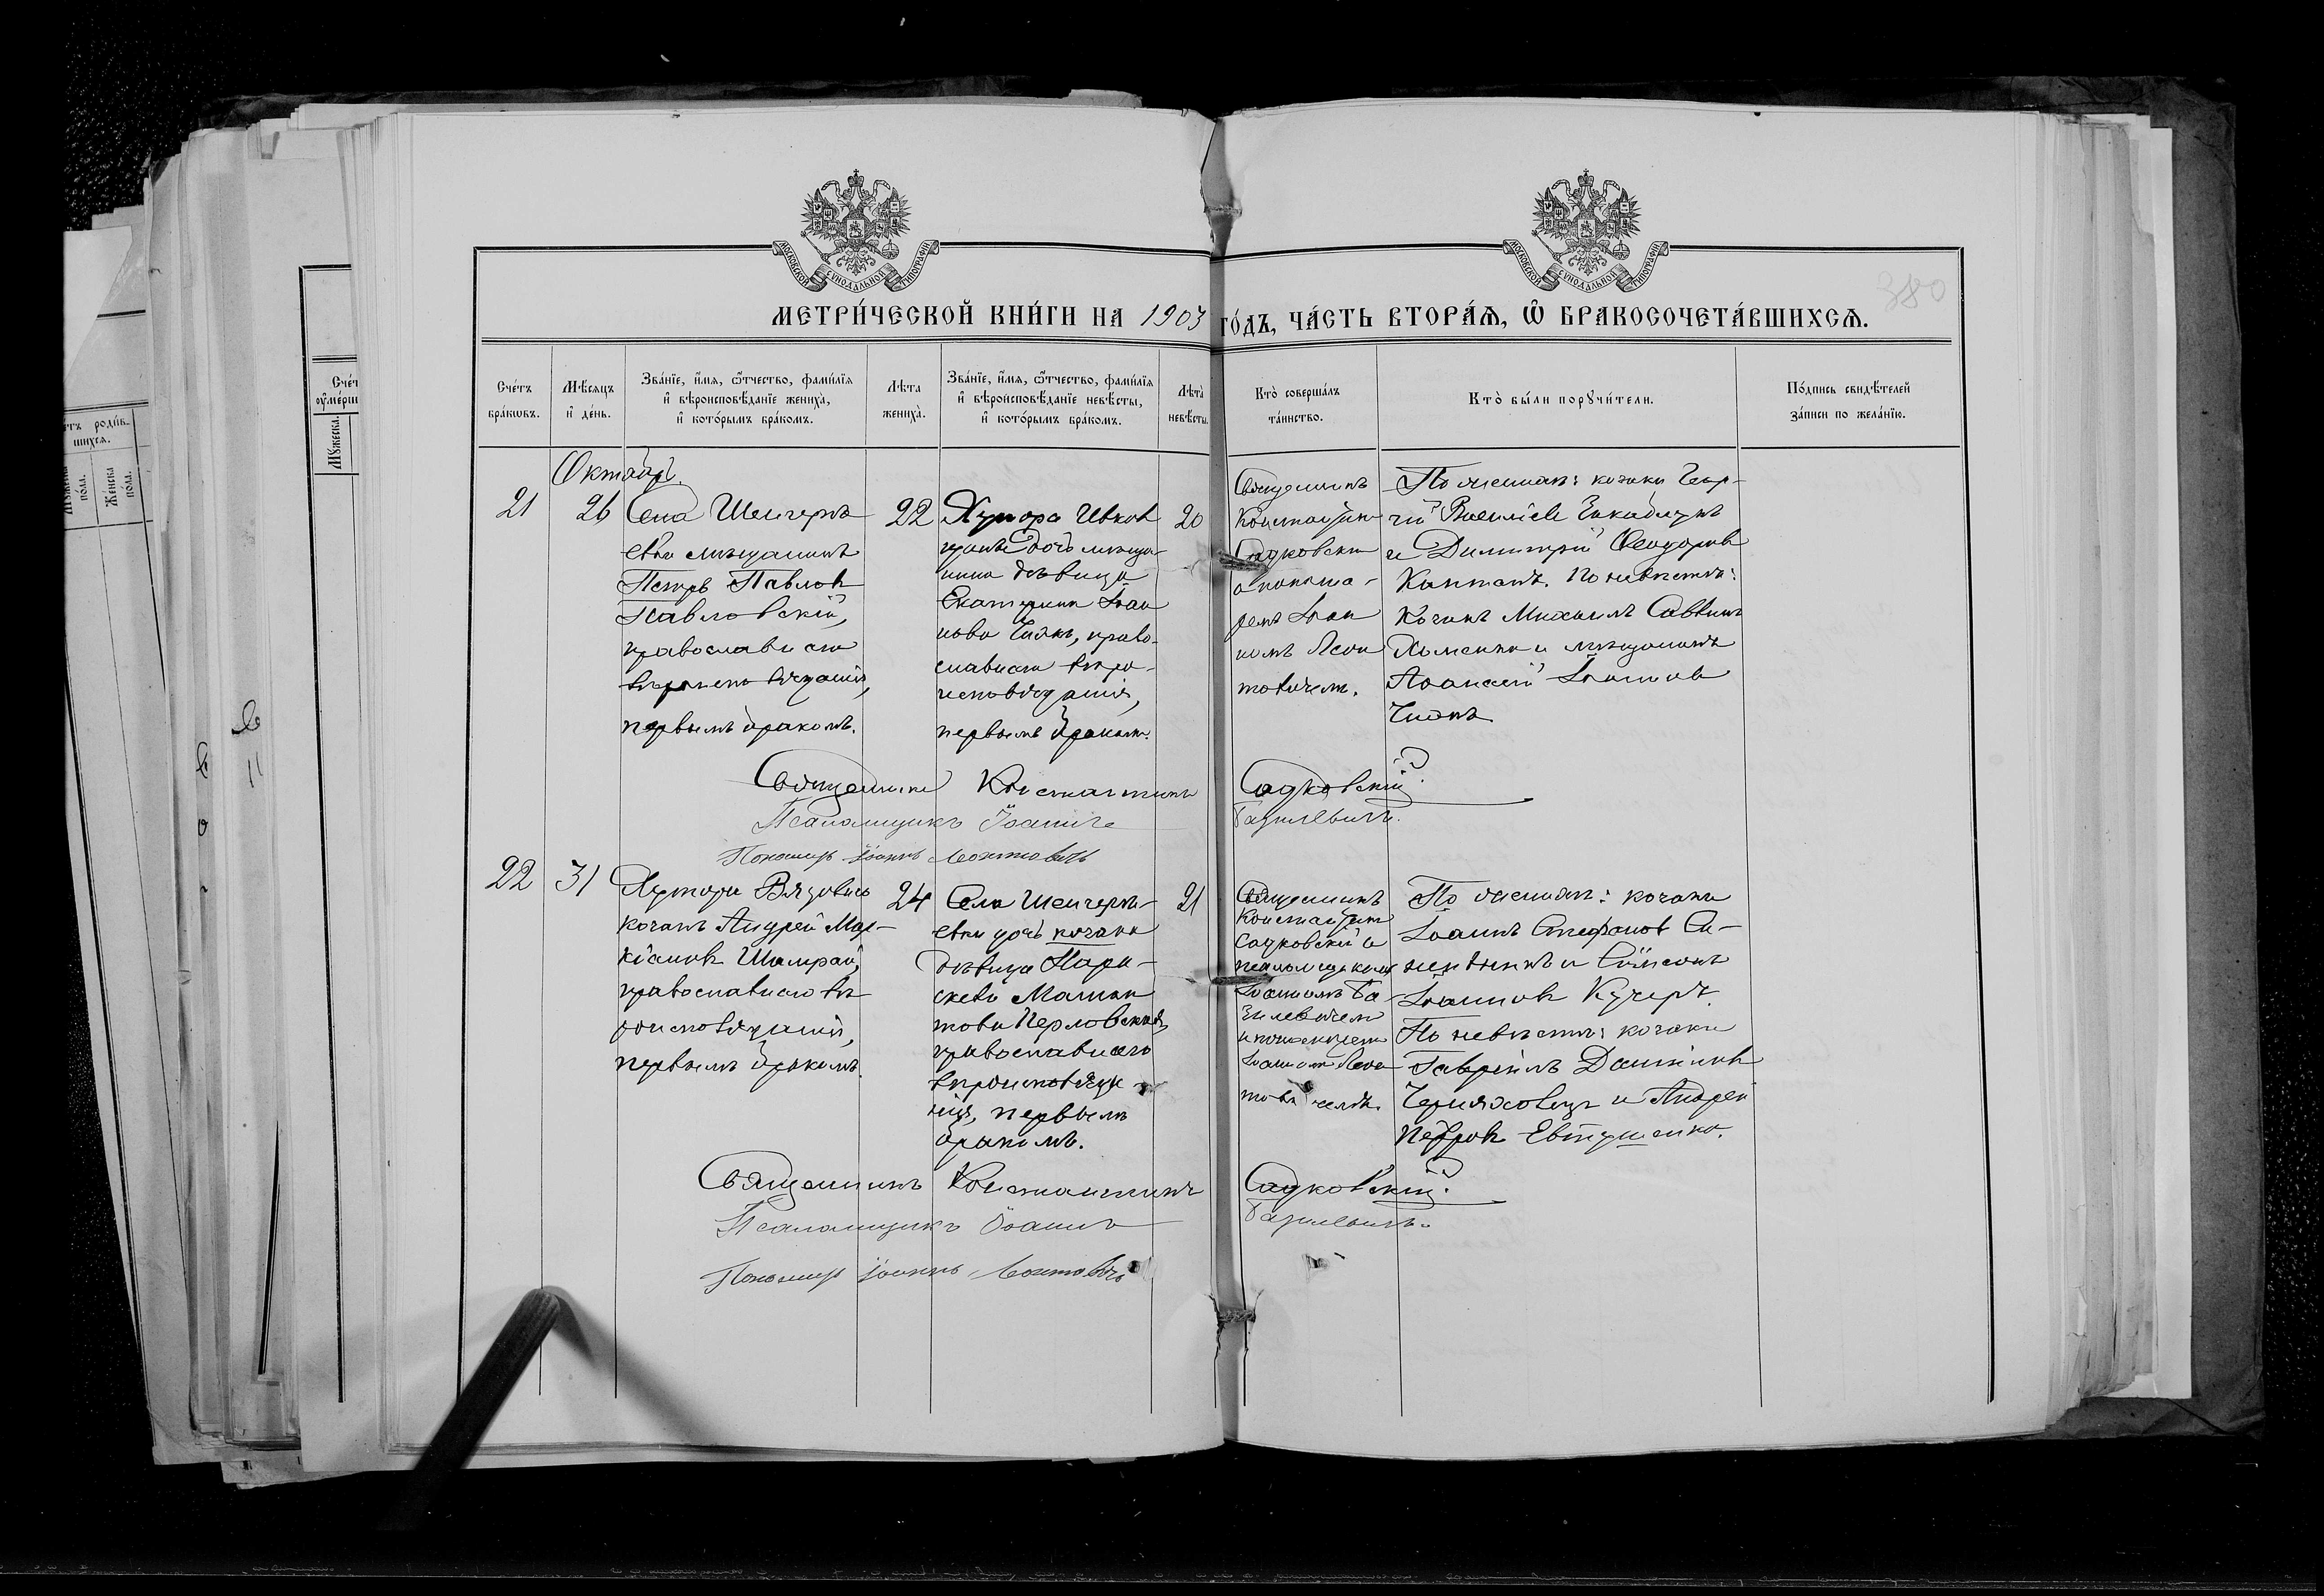 МОСКОВСКОЙ СѴНОДАЛЬНОЙ ТИПОГРАФІИ
МОСКОВСКОЙ СѴНОДАЛЬНОЙ ТИПОГРАФІИ
380
МЕТРИ́ЧЕСКОЙ КНИ́ГИ НА 1903 ГО́ДЪ, ЧА́СТЬ ВТОРА́Ѧ, Ѽ БРАКОСОЧЕТА́ВШИХСѦ.
Сче́тъ
бра́кѡвъ.
Мѣ́сѧцъ
и҆ де́нь.
Зва́нїе, и҆́мѧ, ѻ҆́тчество, фами́лїѧ
и҆ вѣроисповѣ́данїе жениха̀,
и҆ кото́рымъ бра́комъ.
Лѣ́та
жениха̀.
Зва́нїе, и҆́мѧ, ѻ҆́тчество, фами́лїѧ
и҆ вѣроисповѣ́данїе невѣ́сты,
и҆ кото́рымъ бра́комъ.
Лѣ́та
невѣ́сты.
Кто̀ соверша́лъ
та́инство.
Кто̀ бы́ли порꙋчи́тели.
По́дпись свидѣ́телей
за́писи по жела́нїю.
Октябрь.
21
26
Села
мѣщанинъ
Петръ Павловъ
Павловскій,
православнаго
вѣроисповѣданія,
первымъ бракомъ.
22
Хутора Ивков
дочь мѣща-
нина дѣвица
Екатерина Іоан
нова право-
славнаго вѣро-
исповѣданія,
первымъ бракомъ.
20
Священникъ
Константинъ
Садковскій
и понома-
ремъ Іоан
номъ Леон
товичемъ.
По женихѣ: козаки Геор-
гій
и Димитрій Феодоровъ
по невѣстѣ:
Козакъ Михаилъ Саввинъ
Хоменко и мѣщанинъ
Іоанновъ
Священникъ Константинъ Садковскій.
Псаломщикъ Іоаннъ Базилевичъ.
Пономарь Іоаннъ Леонтовичъ
22
31
Хутора
козакъ Андрей Мар-
кіановъ Шамрай,
православнаго вѣ-
роисповѣданія,
первымъ бракомъ.
24
Села
дочь козака
дѣвица Пара-
скева
това Перловская,
православнаго
вѣроисповѣда-
нія, первымъ
бракомъ.
21
Священникъ
Константинъ
Садковскій и
псаломщикомъ
Іоанномъ Ба-
зилевичемъ
и пономаремъ
Іоанномъ Леон
товичемъ.
По женихѣ: козаки
Іоаннъ Стефановъ
и
Іоанновъ Кучеръ.
По невѣстѣ: козаки
Гавріилъ Даніиловъ
Черняховецъ и Андрей
Петровъ Евтушенко.
Священникъ Константинъ Садковскій.
Псаломщикъ Іоаннъ Базилевичъ.
Пономарь Іоаннъ Леонтовичъ